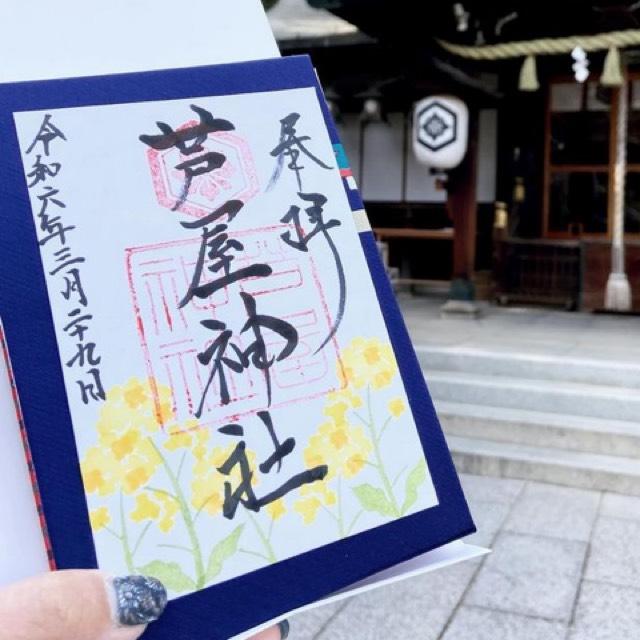 奉拝
芦屋神社
令和六年三月二十九日